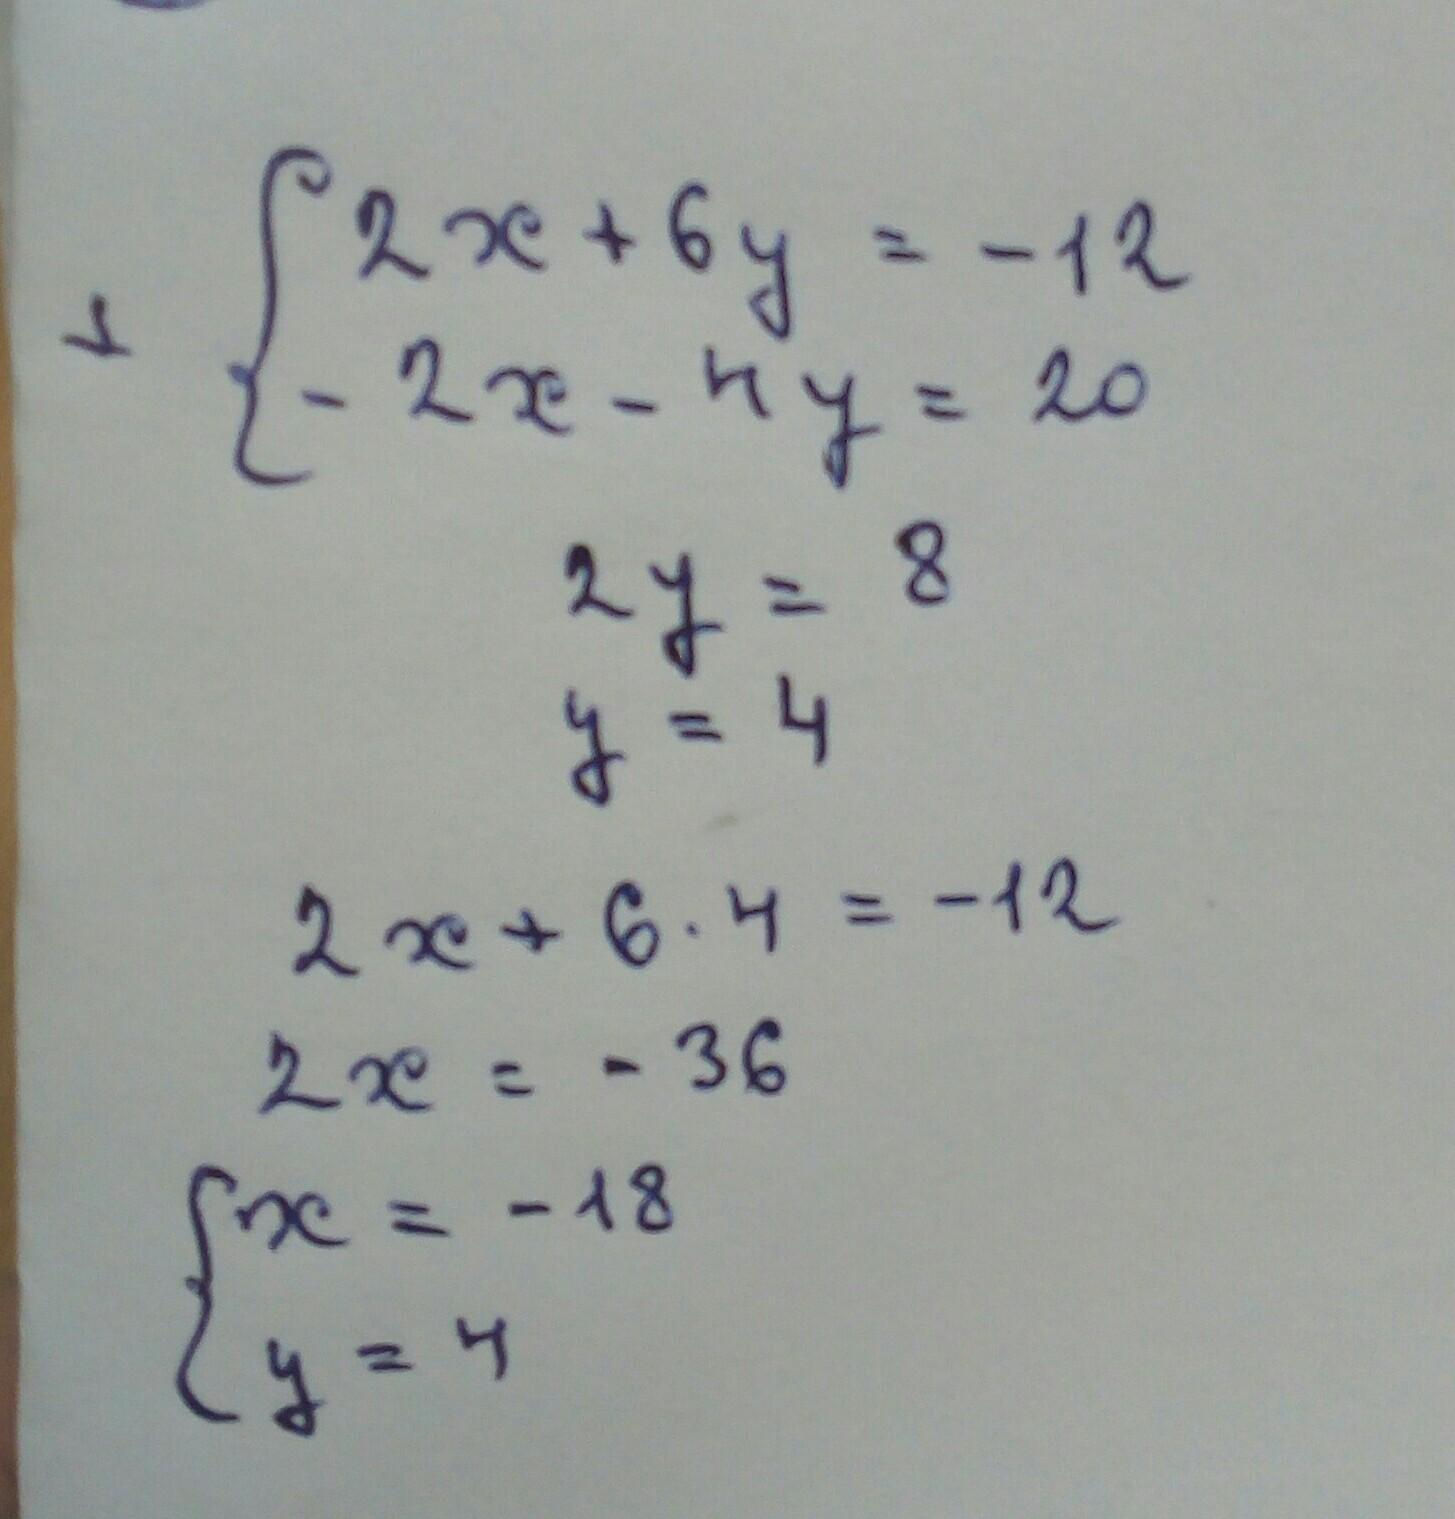 2x + 6y = -12
+
- 2x - 4y = 20
2y = 8
y = 4
2x + 6 · 4 = -12
2x = - 36
x = -18
y = 4